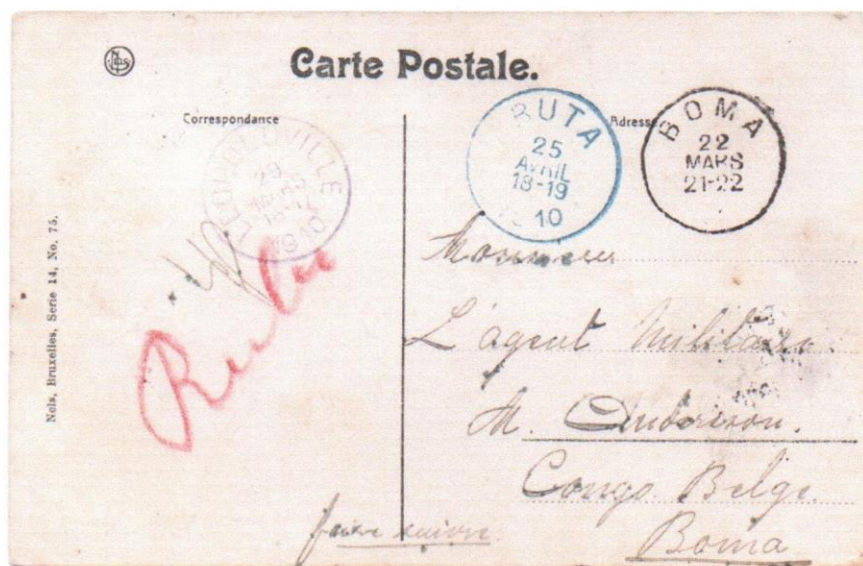 Carte Postale.
Correspondance
Adresse
LEOPOLDVILLE
29
MARS
1910
BUTA
25
AVRIL
18-19
10
BOMA
22
MARS
21-22
Nels, Bruxelles, Serie 14, No. 75.
Monsieur
L'agent Militaire
M. Anderson.
Congo Belge
Boma
faire suivre